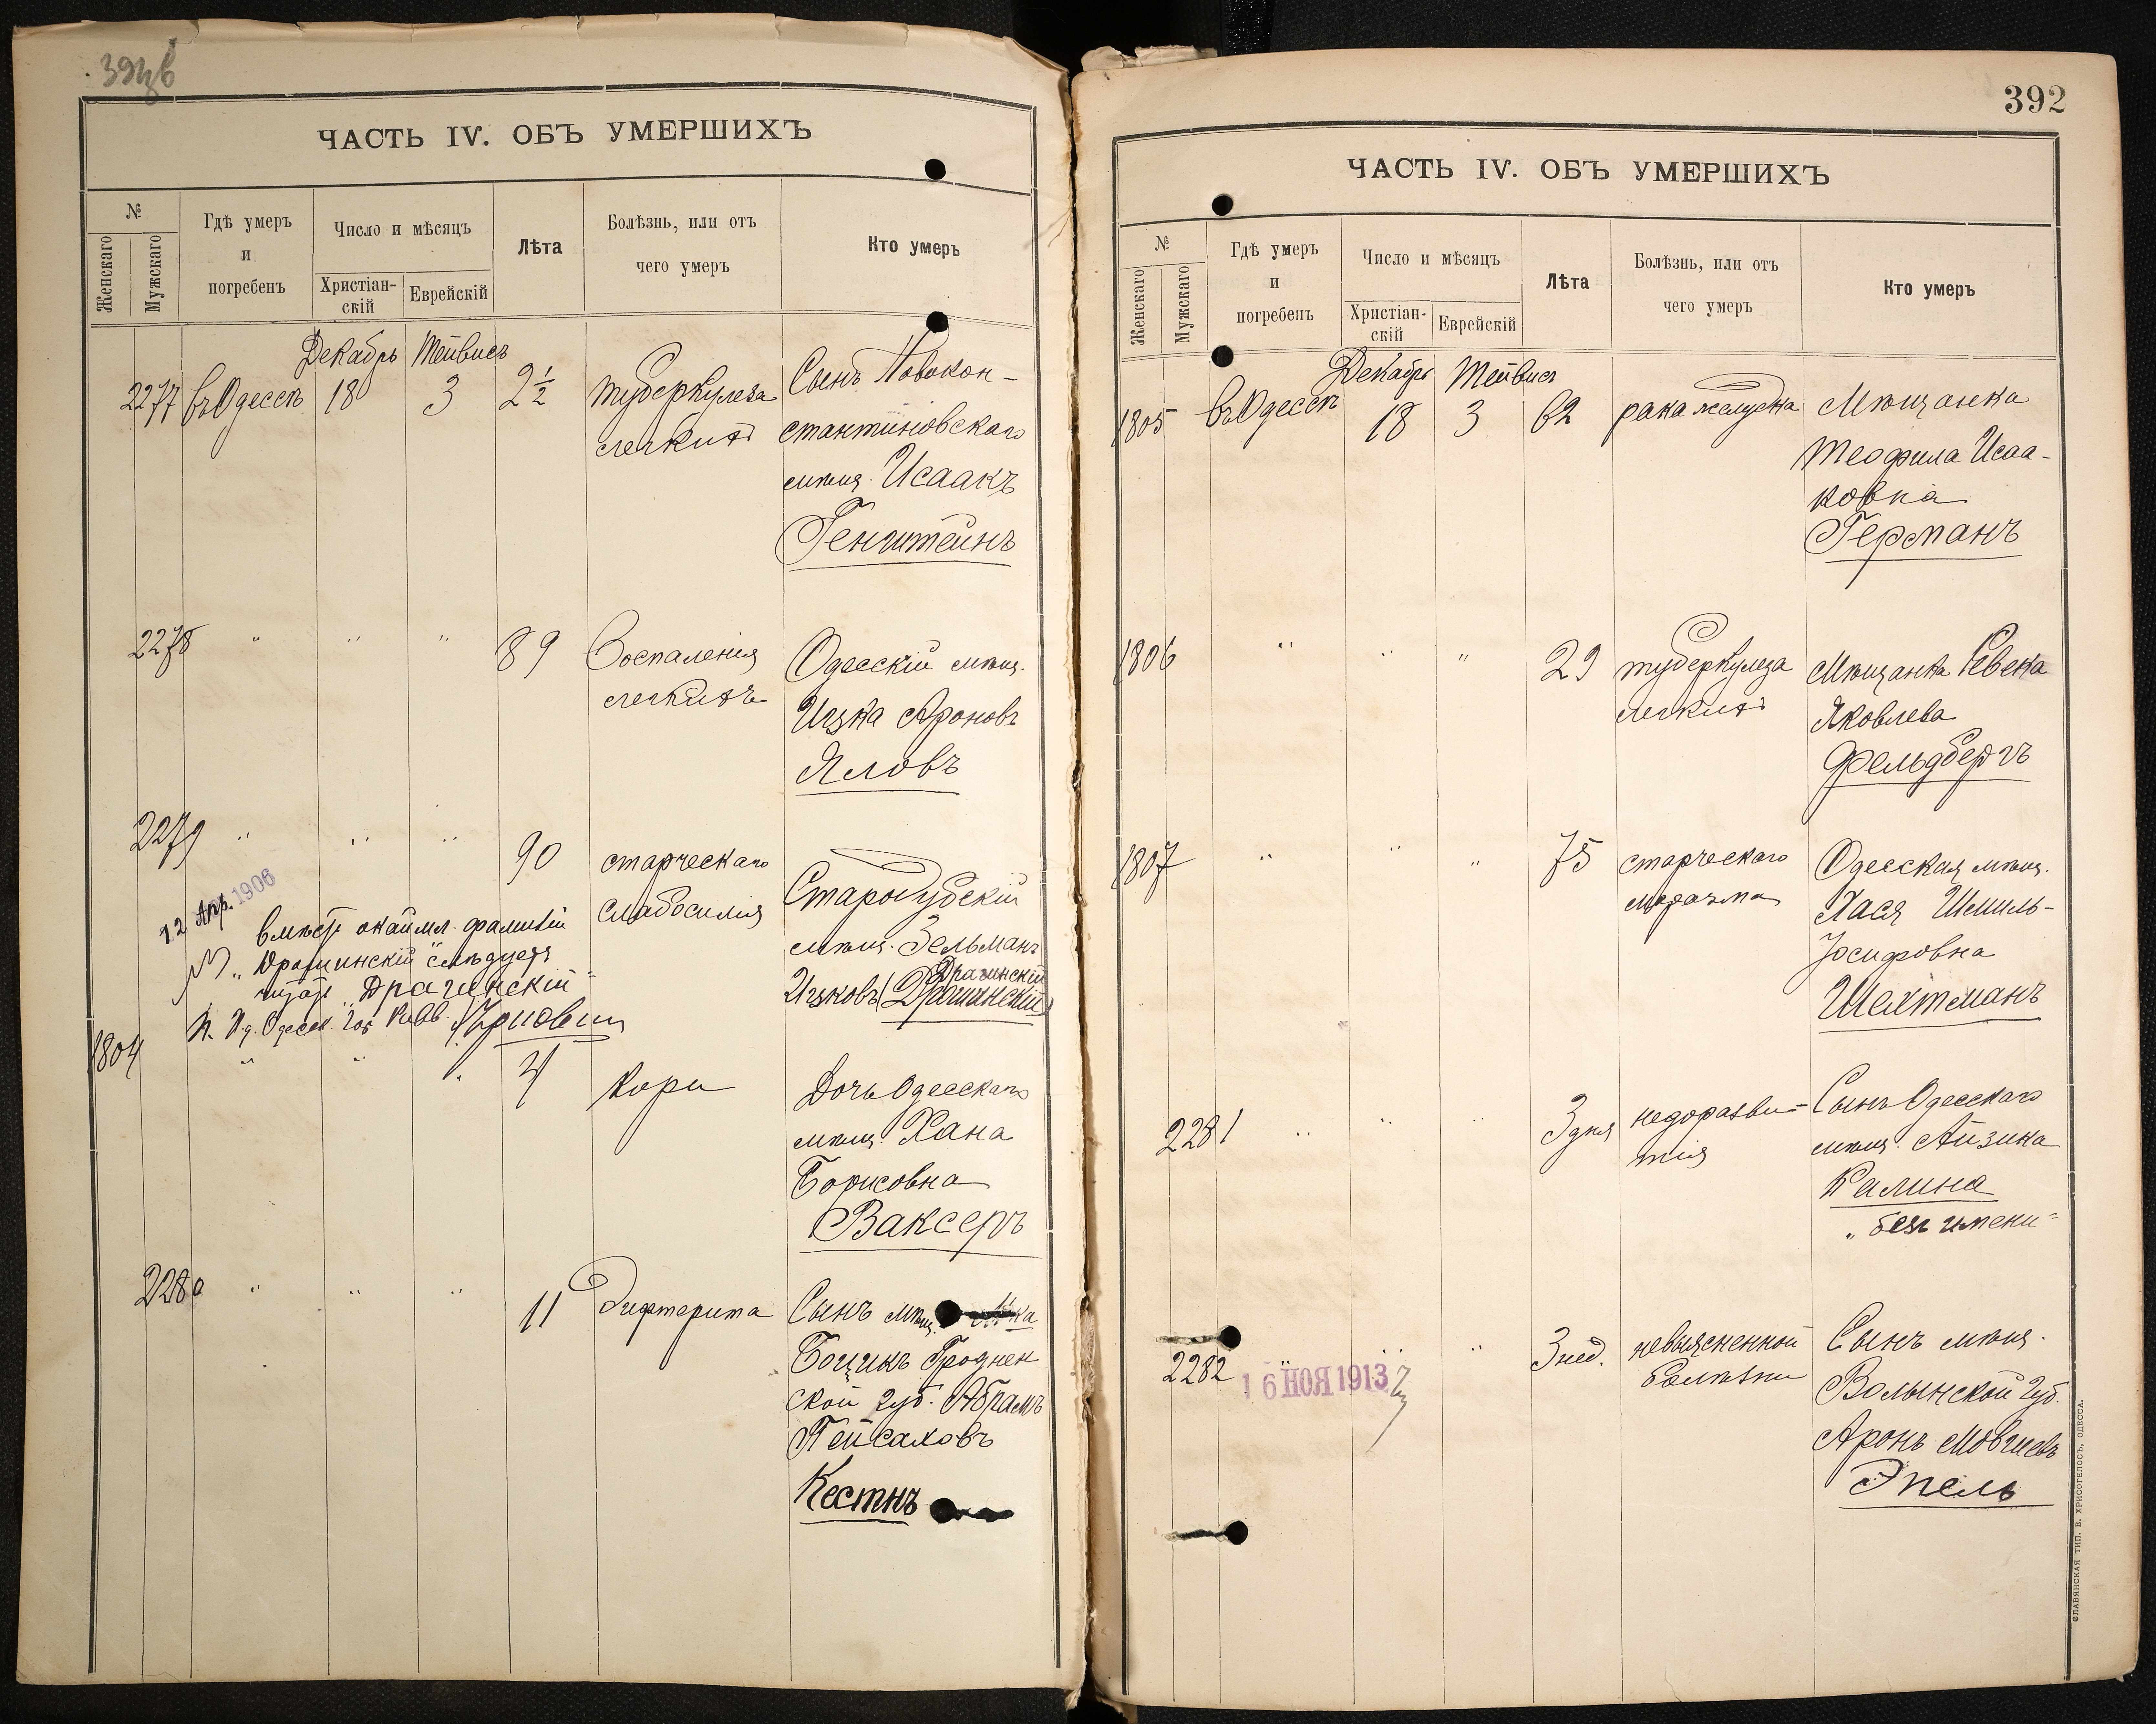 ЧАСТЬ IV. ОБЪ УМЕРШИХЪ
№
Женскаго
Мужскаго
Гдѣ умеръ
и
погребенъ
Число и мѣсяцъ
Христіан-
скій
Еврейскій
Лѣта
Болѣзнь, или отъ
чего умеръ
Кто умеръ
Декабрь Тейвисъ
2277 въ Одессѣ 18 3 2½ туберкулеза Сынъ Новокон-
легкихъ стантиновскаго
мѣщ. Исаакъ
Генштейнъ
2278 " " " 89 Воспаленія Одесскій мѣщ.
легкихъ Ицка Ароновъ
Яловъ
2279 " " " 90 старческаго Стародубскій
слабосилія мѣщ. Зельманъ
Ицковъ Драгинскій
12 Апр. 1906
вмѣсто окаймл. фамилій
следуетъ
читать „Драгинскій"
1804 " " " 4 Кори Дочь Одесскаго
мѣщ. Хана
Борисовна
Ваксеръ
2280 " " " 11 Дифтерита Сынъ мѣщ.
Гроднен
ской губ. Абрамъ
Пейсаховъ
Кестнъ
392
ЧАСТЬ IV. ОБЪ УМЕРШИХЪ
№
Женскаго
Мужскаго
Гдѣ умеръ
и
погребенъ
Число и мѣсяцъ
Христіан-
скій
Еврейскій
Лѣта
Болѣзнь, или отъ
чего умеръ
Кто умеръ
Декабрь Тейвисъ
1805 въ Одессѣ 18 3 62 рака желудка Мѣщанка
Теофила Исаа-
ковна
Германъ
1806 " " " 29 туберкулеза Мѣщанка Ревека
легкихъ Яковлева
Фельдбергъ
1807 " " " 75 старческаго Одесская мѣщ.
маразма Хася Шмиль-
Іосифовна
Шехтманъ
2281 " " " 3 дня недоразви- Сынъ Одесскаго
тія мѣщ. Айзика
Калина
„безъ имени"
2282 " " " 3 нед. невыясненной Сынъ мѣщ.
болѣзни Волынской губ.
Аронъ Мовшевъ
Эпель
16 НОЯ 1913
СЛАВЯНСКАЯ ТИП. Е. ХРИСОГЕЛОСЪ, ОДЕССА.